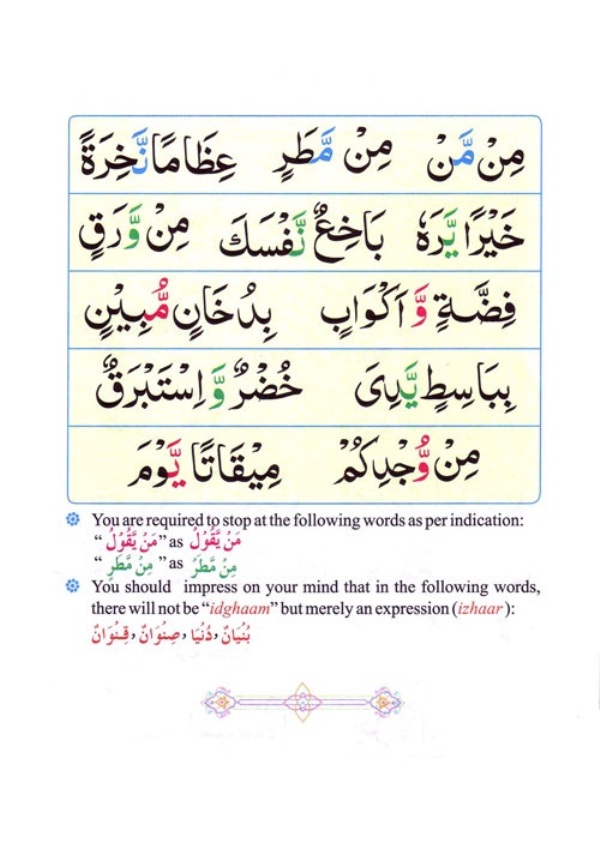 مِنْ مَّنْ مِنْ مَّطَرٍ عِظَامًا نَّخِرَةً
خَيْرًا يَّرَهٗ بَاخِعٌ نَّفْسَكَ مِنْ وَّرَقٍ
فِضَّةٍ وَّ اَكْوَابٍ بِدُخَانٍ مُّبِيْنٍ
بِبَاسِطٍ يَّدِىَ خُضْرٌ وَّ اِسْتَبْرَقٌ
مِنْ وُّجْدِكُمْ مِيْقَاتًا يَّوْمَ
You are required to stop at the following words as per indication:
“ مَنْ يَّقُوْلُ ” as مَنْ يَّقُوْلُ
“ مِنْ مَّطَرٍ ” as مِنْ مَّطَرْ
You should impress on your mind that in the following words,
there will not be “idghaam” but merely an expression (izhaar):
بُنْيَانٌ، دُنْيَا، صِنْوَانٌ، قِنْوَانٌ